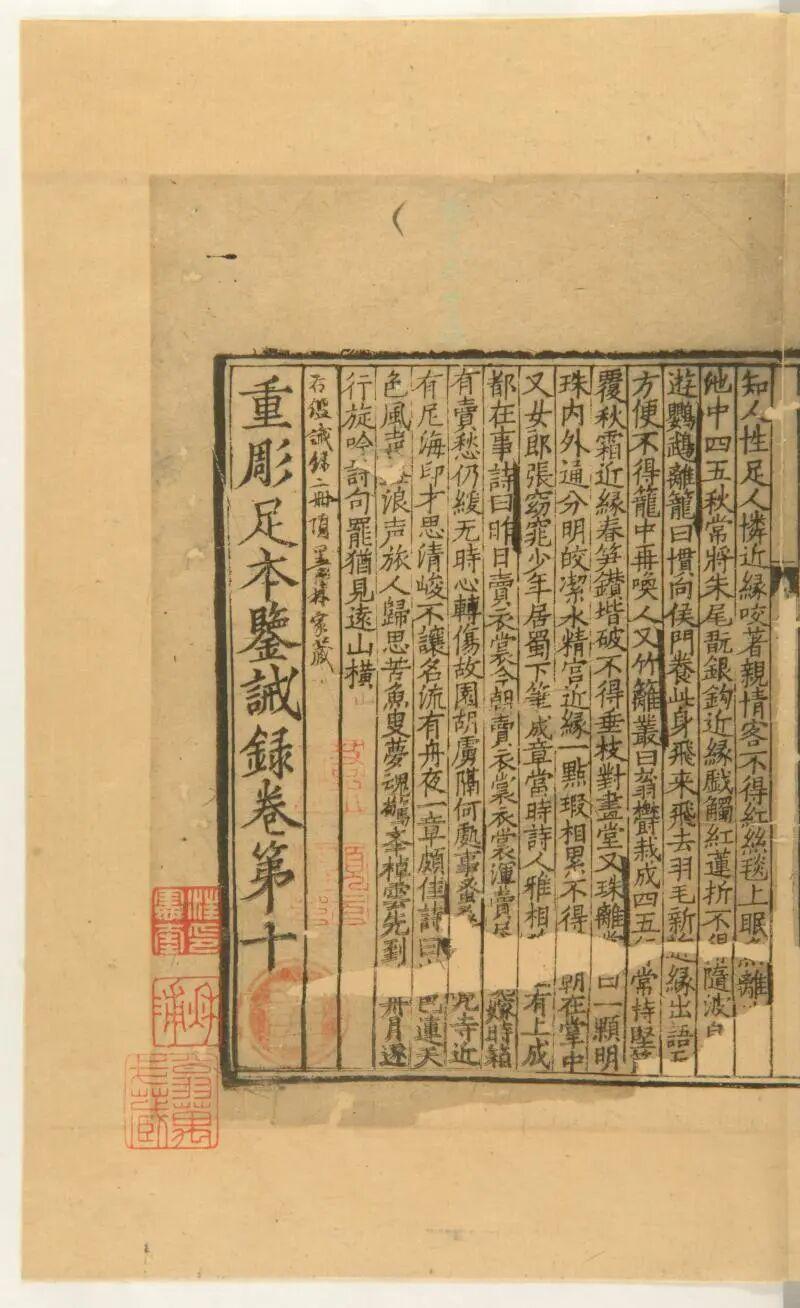 知人性足人憐近緣咬著親情客不得紅絲毯上眠 離
池中四五秋常將朱尾翫銀鉤近緣戲觸紅蓮折不 隨波
遊鸚鵡離籠曰慣向侯門養此身飛来飛去羽毛新 緣出語
方便不得籠中再喚人又竹離叢曰蓊欝栽成四五 常持堅
覆秋霜近緣春笋鑽堦破不得垂枝對畫堂又珠離 曰一顆明
珠内外通分明皎潔水精宫近緣一點瑕相累不得 在掌中
又女郎張窈窕少年居蜀下筆成章當時詩人雅相 有上成
都在事詩曰昨日賣衣裳今朝賣衣裳衣裳渾賣 嫁時箱
有賣愁仍緩无時心轉傷故園胡虜隔何處事蚕 寺近
有尼海印才思清峻不讓名流有舟夜一章頗佳詩曰 連天
色風声 浪声旅人歸思苦魚叟夢魂驚 棹雲先到 舟月遂
行旋吟詩句罷猶見遠山横
右鑑誡録二冊項墨林家藏
重彫足本鑒誡録卷第十